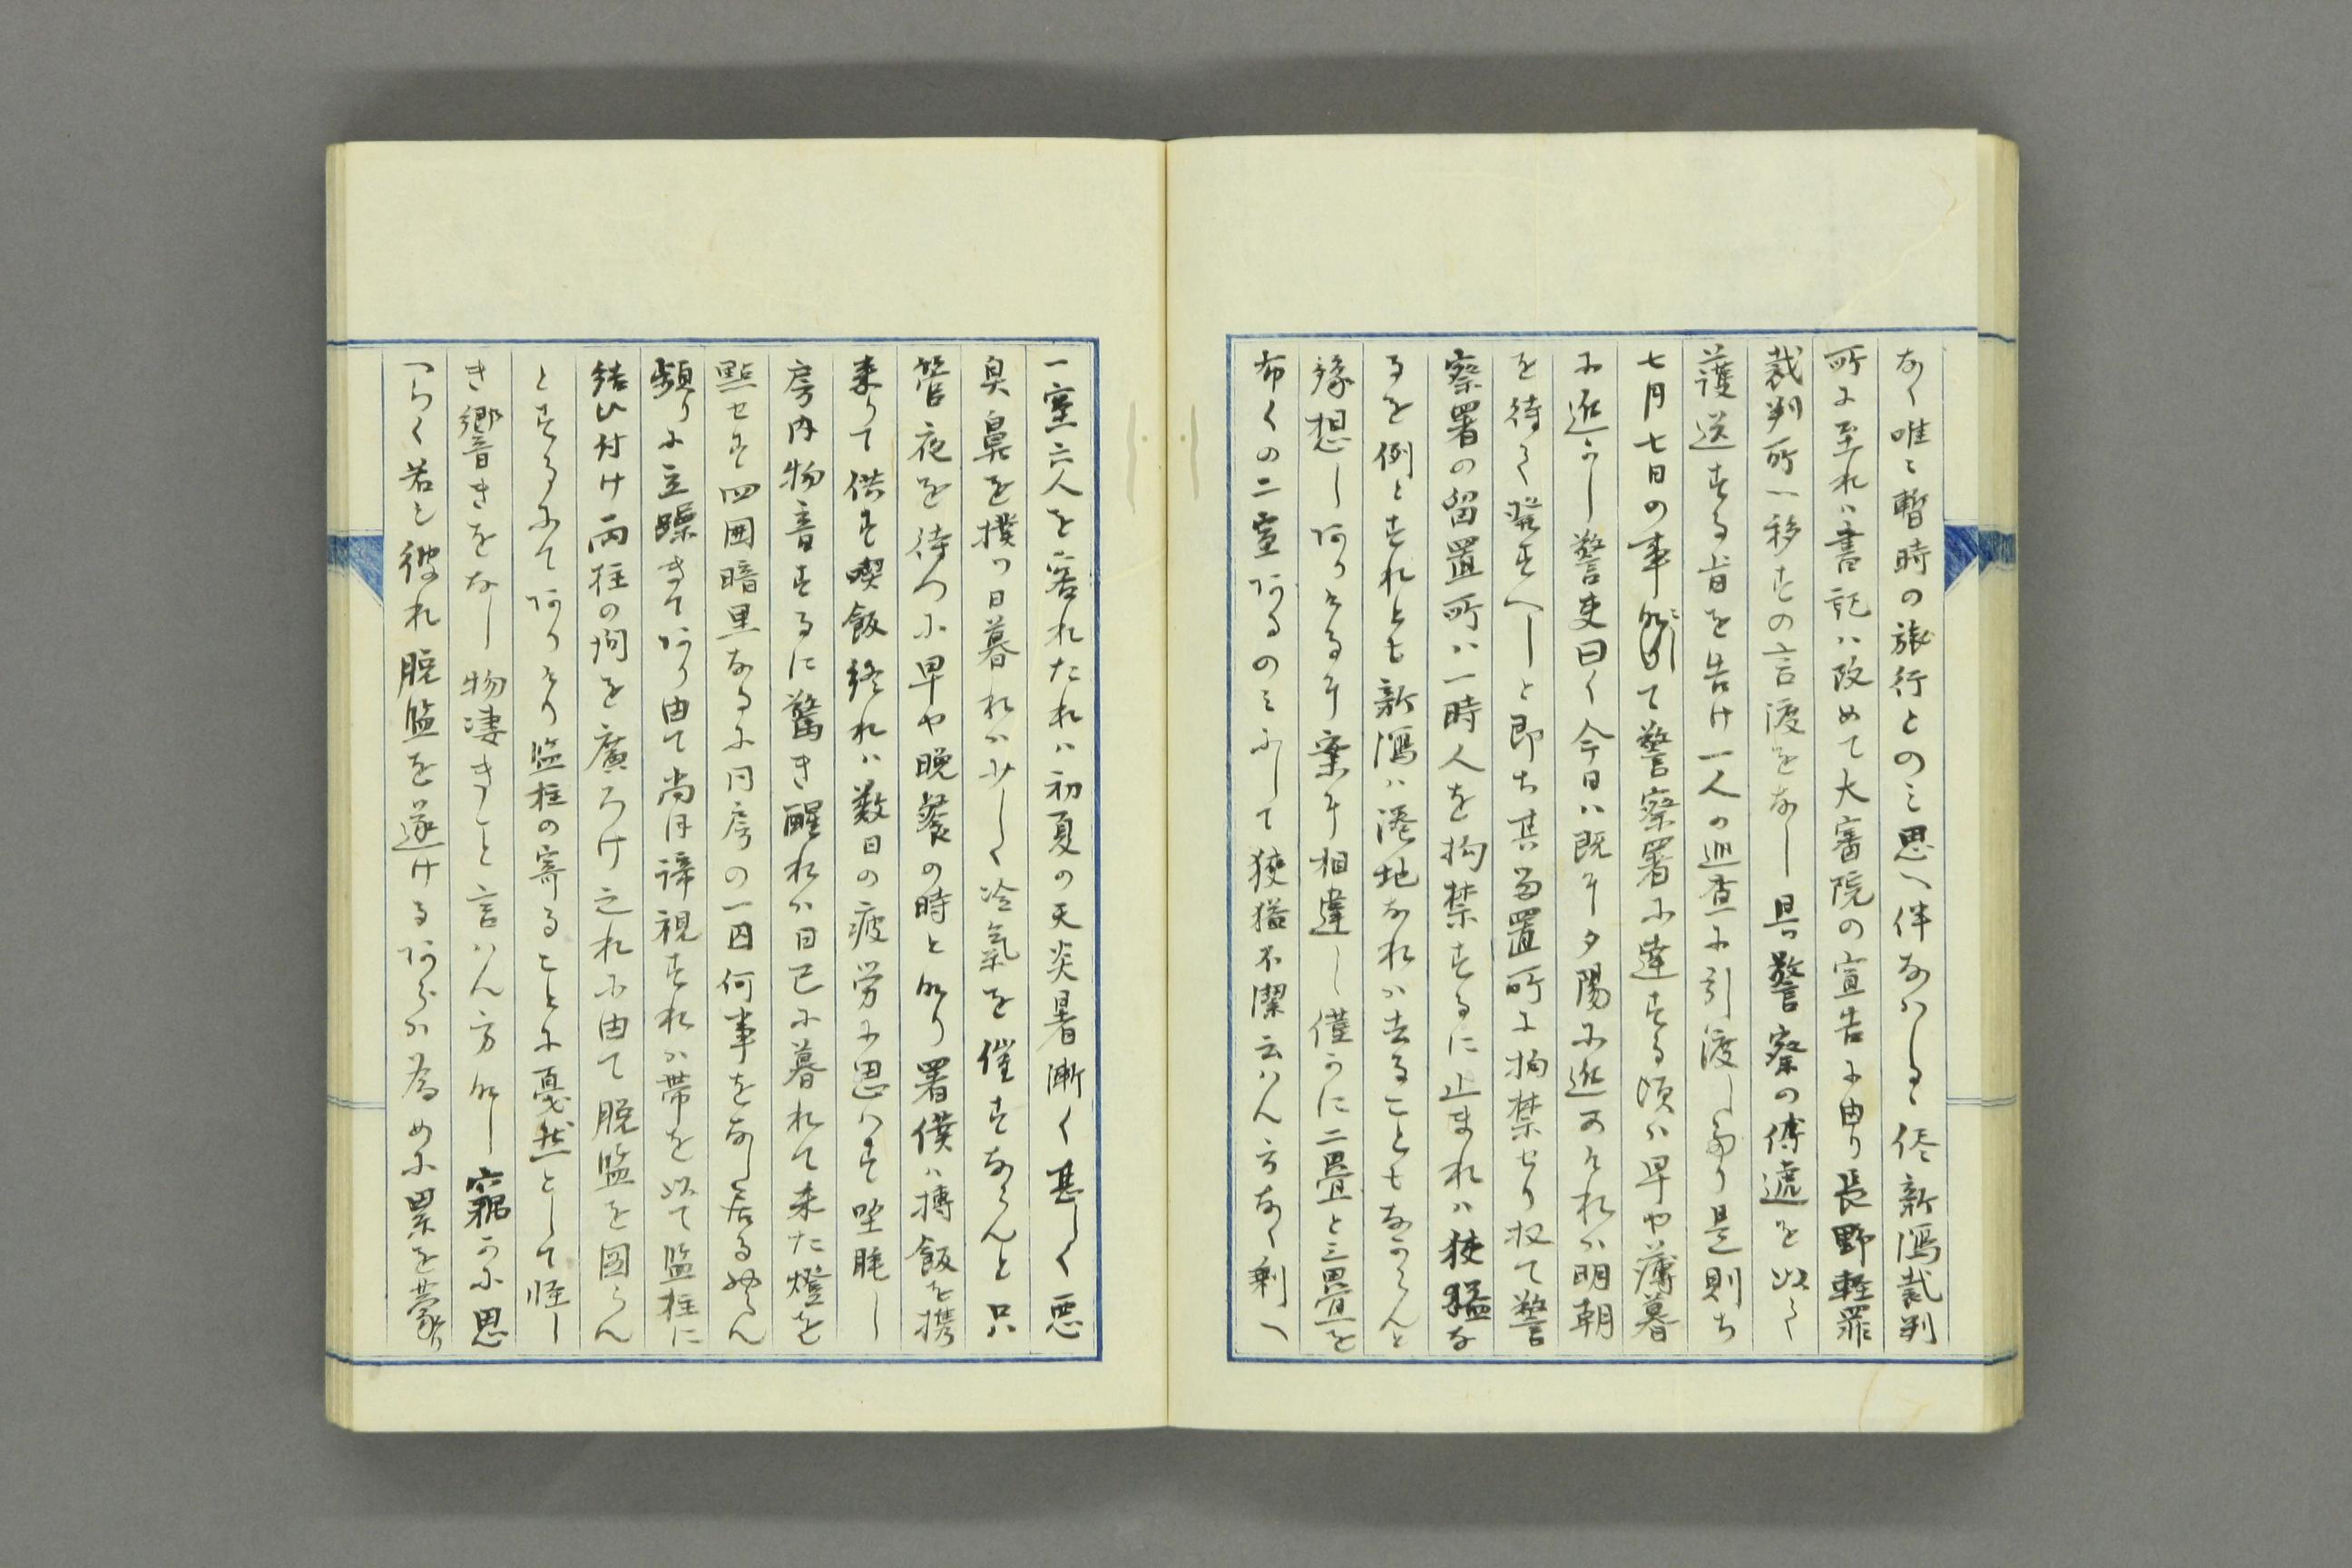 なく唯々暫時の旅行とのミ思へ伴なハる偖新潟裁判
所に至れハ書記ハ改めて大審院の宣告に由り長野軽罪
裁判所へ移すの言渡をなし且警察の傳遞を以て
護送する旨を告け一人の巡査に引渡したり是則ち
七月七日の事にして警察署に達する頃ハ早や薄暮
に近かし警吏曰く今日ハ既に夕陽に近かけれハ明朝
を待て發すへしと即ち其留置所に拘禁せり扨て警
察署の留置所ハ一時人を拘禁するに止まれハ狭隘な
るを例とすれとも新潟ハ港地なれハ去ることもなからんと
豫想し阿りけるに案に相違し僅かに二畳と三畳を
布くの二室阿るのミにして狭隘不潔云ハん方なく剰へ
一室六人を容れたれハ初夏の天炎暑漸く甚しく悪
臭鼻を撲つ日暮れハ少しく冷氣を催すならんと只
管夜を待つに早や晩餐の時と成り署僕ハ摶飯を携
来りて供す喫飯終れハ数日の疲労に思ハす坐眠し
房内物音するに驚き醒れハ日已に暮れて未た燈を
點せす四囲暗黒なるに同房の一囚何事をなし居るやらん
頻りに立躁きて阿り由て尚ほ諦視すれハ帯を以て監柱に
結ひ付け両柱の間を廣ろけ之れに由て脱監を図らん
とするにて阿りけり監柱の寄ることに戞然として怪し
き響きをなし物凄きこと言ハん方なし竊かに思
へらく若し彼れ脱監を遂ける阿らハ為めに累を蒙り